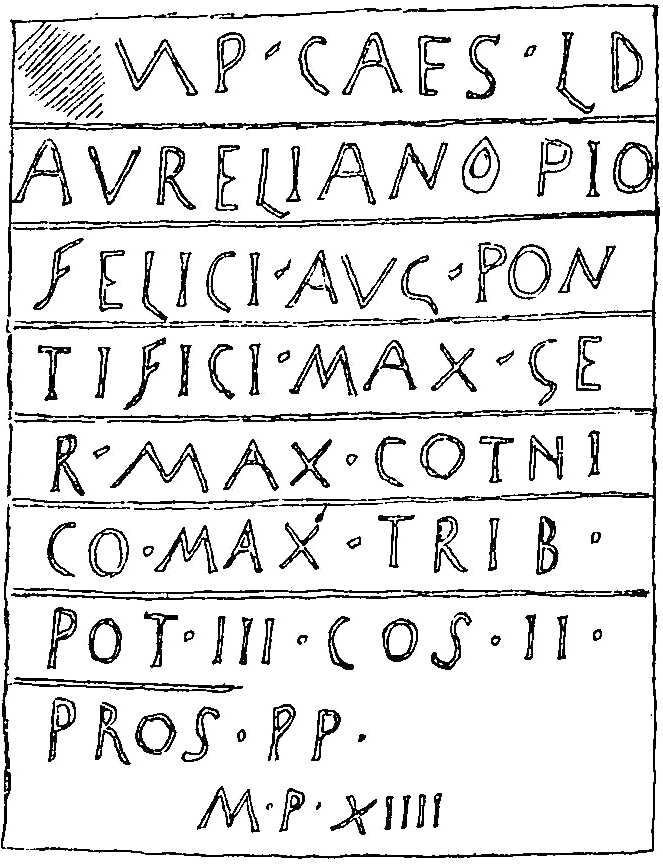 MP · CAES · L D
AVRELIANO PIO
FELICI · AVG · PON
TIFICI · MAX · GE
R · MAX · COTNI
CO · MAX · TRIB ·
POT · III · COS · II ·
PROS · PP ·
M · P · XIIII